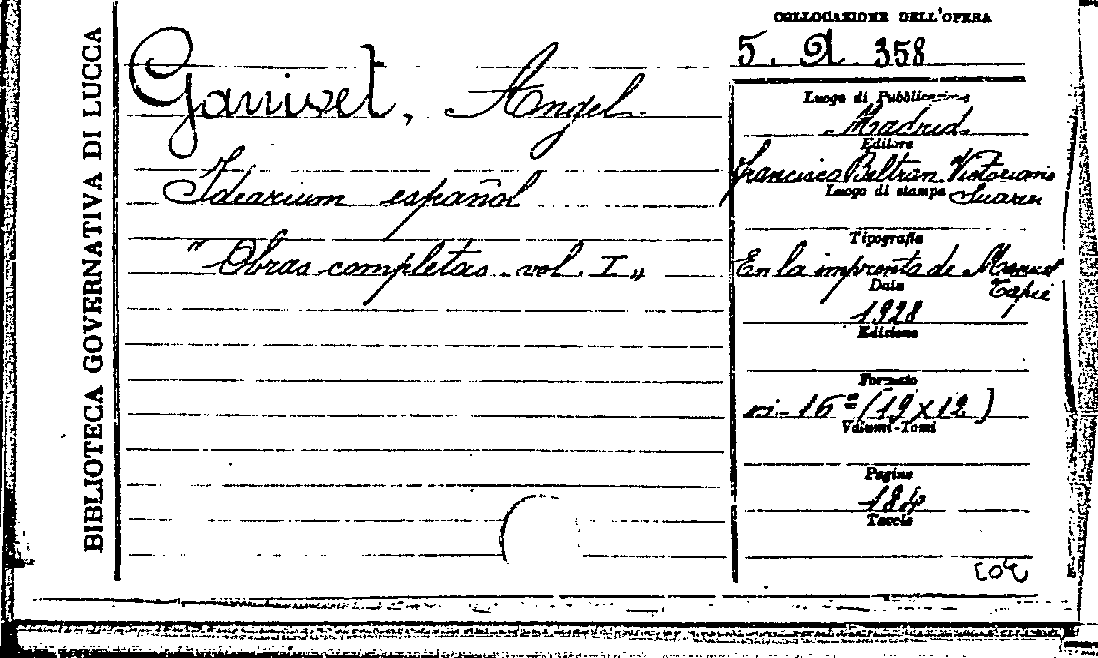 BIBLIOTECA GOVERNATIVA DI LUCCA
Ganivet, Angel
Idearium español
"Obras completas - vol. I"
COLLOCAZIONE DELL'OPERA
5. A. 358
Luogo di Pubblicazione
Madrid
Editore
Francisco Beltran Victoriano
Suarez
Luogo di stampa
Tipografia
En la imprenta de Manuel
Tapie
Data
1928
Edizione
Formato
in-16º (19x12)
Volumi-Tomi
Pagine
184
Tavole